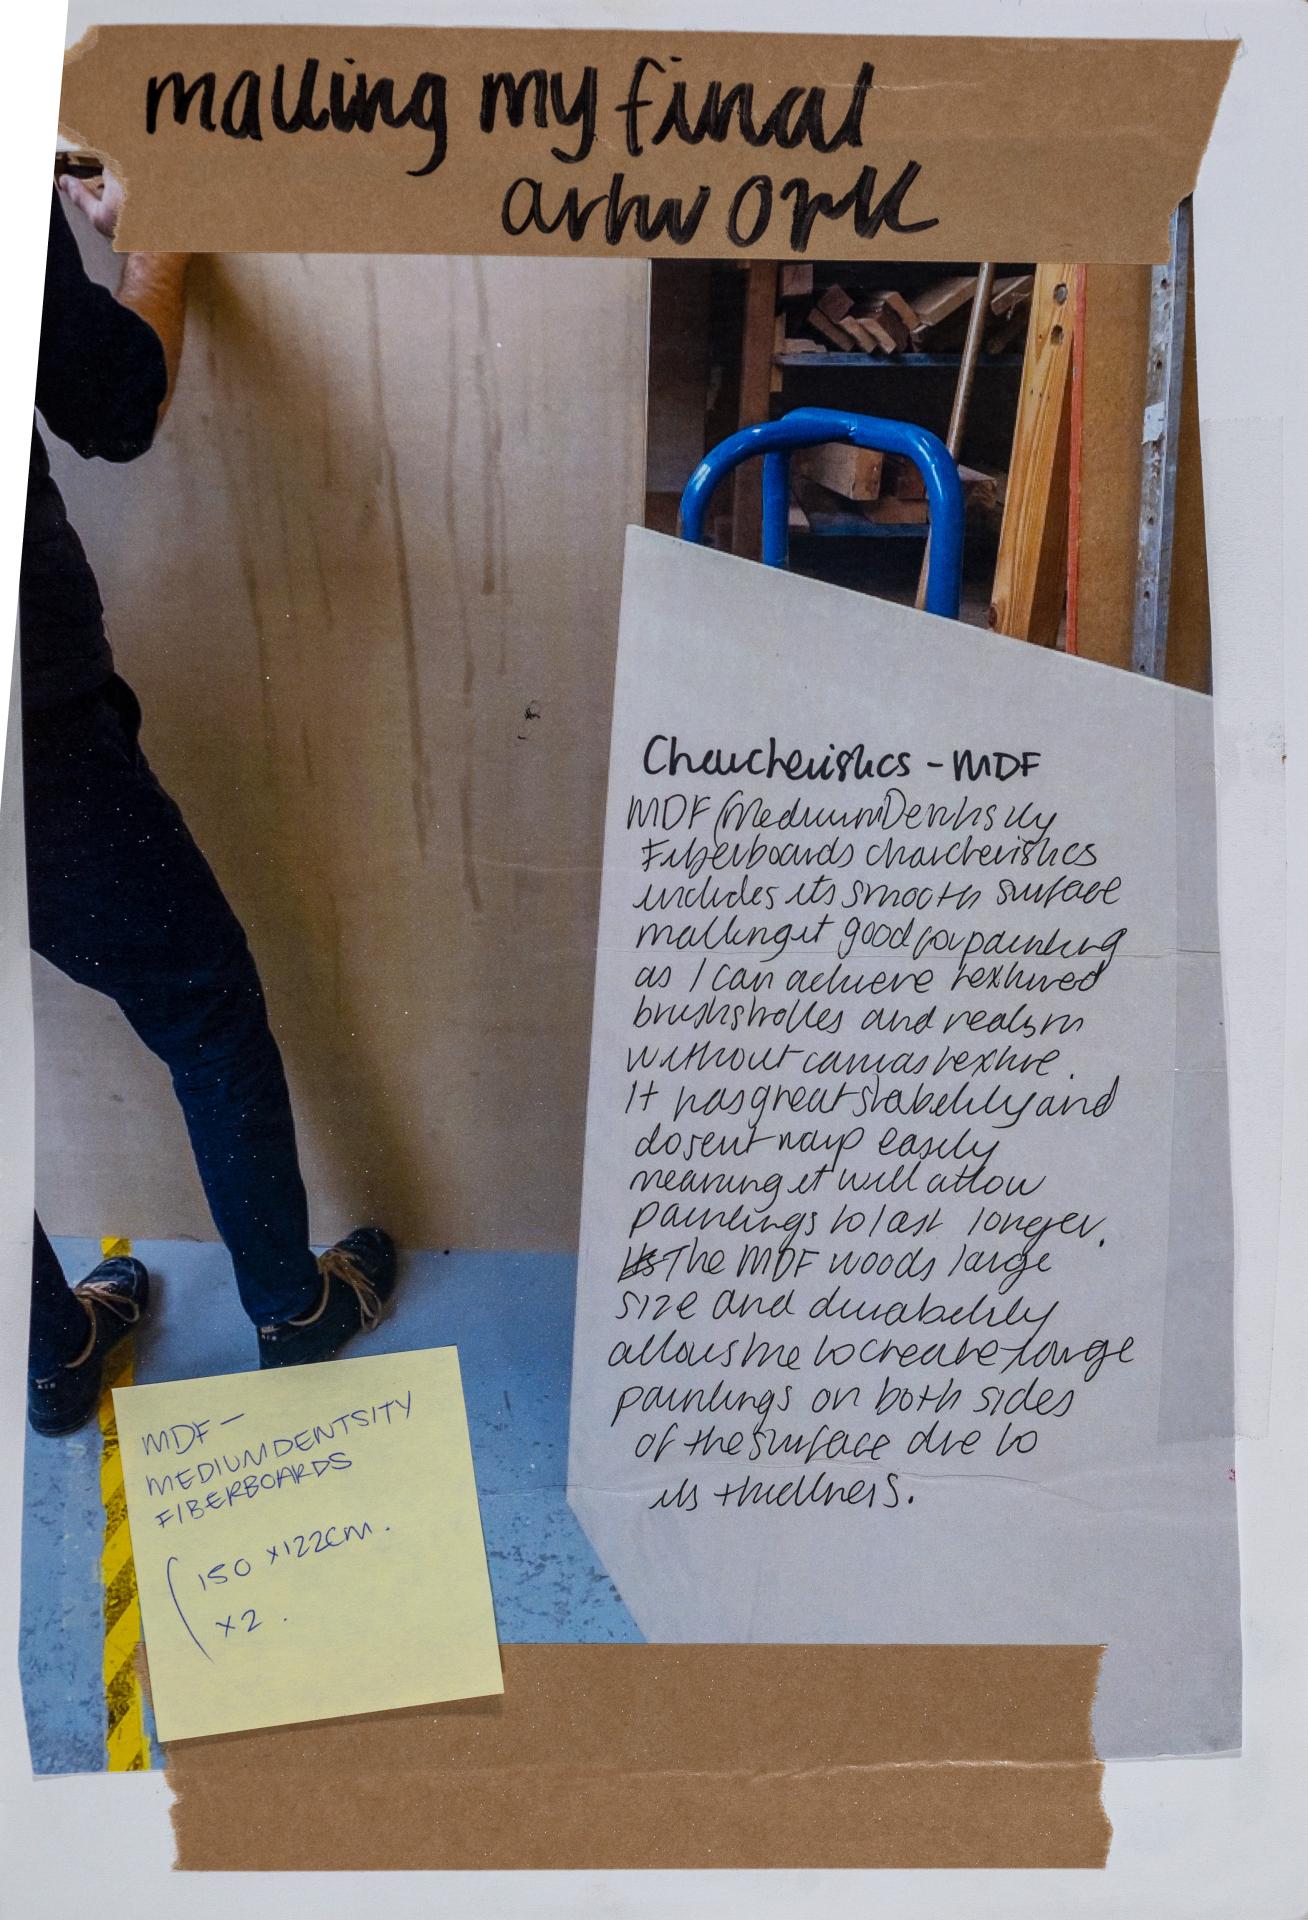 making my final
artwork
Charcheristics - MDF
MDF (Medium Dentisity
Fiberboards charcheristics
includes its smooth surface
making it good for painting
as I can achieve textured
brushstrokes and realism
without canvas texture.
It has great stability and
dosent warp easily
meaning it will allow
paintings to last longer.
The MDF woods large
size and durability
allows me to create large
paintings on both sides
of the surface due to
its thickness.
MDF -
MEDIUM DENTSITY
FIBERBOARDS
(150 x122cm.
x2.